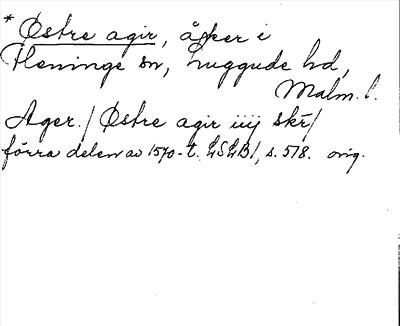 * Østre agir, åker i
Fleninge sn, Luggude hd,
Malm. l.
Ager./ Østre agir iiij skr/
förra delen av 1570-t. LSLB1, s. 578. orig.